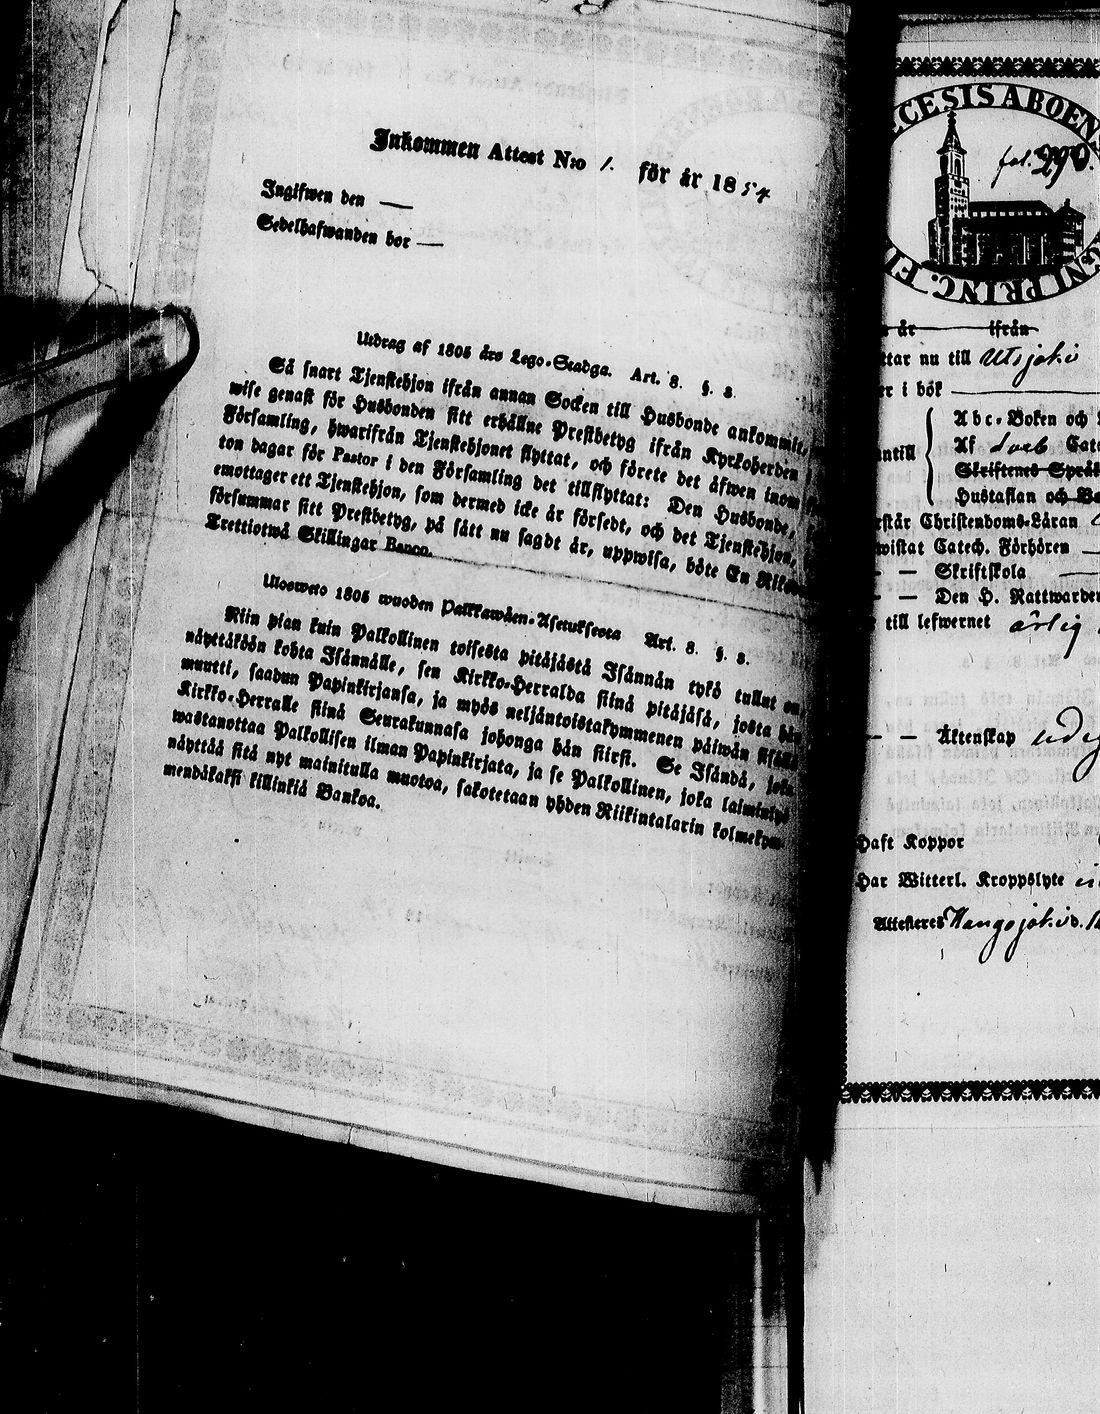 Inkommen Attest N:o 1. för år 1854
Ingifwen den —
Sedelhafwanden bor —
Utdrag af 1805 års Lego-Stadga. Art. 8. §. 3.
Så snart Tjenstehjon ifrån annan Socken till Husbonde ankommit,
wise genast för Husbonden sitt erhållne Prestbetyg ifrån Kyrkoherden i
Församling, hwarifrån Tjenstehjonet flyttat, och förete det äfwen inom
ton dagar för Pastor i den Församling det tillflyttat: Den Husbonde,
emottager ett Tjenstehjon, som dermed icke är försedt, och det Tjenstehjon,
försummar sitt Prestbetyg, på sätt nu sagdt är, uppwisa, böte En Riksd
Trettiotwå Skillingar Banco.
Ulosweto 1805 wuoden Palkkawäen-Asetuksesta Art. 8. §. 3.
Niin pian kuin Palkollinen toisesta pitäjästä Isännän tykö tullut on,
näyttäköön kohta Isännälle, sen Kirkko-Herralda siinä pitäjäsä, josta hän
muutti, saadun Papinkirjansa, ja myös neljäntoistakymmenen päiwän sisällä
Kirkko-Herralle siinä Seurakunnasa johonga hän siirsi. Se Isändä, joka
wastanottaa Palkollisen ilman Papinkirjata, ja se Palkollinen, joka laiminlyö
näyttää sitä nyt mainitulla muotoa, sakotetaan yhden Riikintalarin kolmekym-
mendäkaksi killinkiä Bankoa.
CESIS ABOEN
GNI PRINC. FI
fol. 290.
år ifrån
ttar nu till Utsjoki
er i bok
Abc-Boken och
ntill Af Catec
Skriftenes Språk
Hustaflan och
rstår Christendoms-Läran
wistat Catech. Förhören —
— — Skriftskola —
— — Den H. Nattwarden
till lefwernet ärlig
— — Äktenskap
Haft Koppor
Har Witterl. Kroppslyte
Attesteres Kangosjoki d.